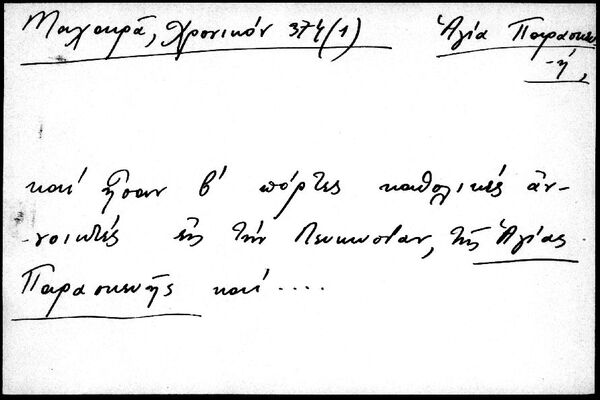 Μαχαιρᾶ, Χρονικόν 374(1) Ἁγία Παρασκευ
-ή,
καί ἦσαν β' πόρτες καθολικές ἀν-
-νοικτές εἰς τήν Λευκωσίαν, τῆς Ἁγίας
Παρασκευῆς καί ....